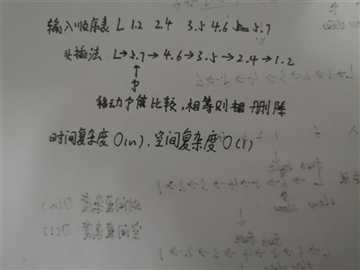 输入顺序表 L 1.2 2.4 3.5 4.6 5.7
头插法 L→5.7→4.6→3.5→2.4→1.2
P
移动P值比较,相等则删除
时间复杂度O(n),空间复杂度O(1)